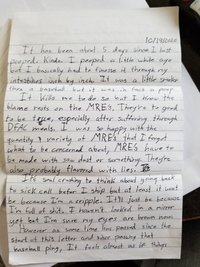 10/19/2020
It has been about 5 days since I last
pooped. Kinda. I pooped a little while ago
but I basically had to finesse it through my
intestines inch by inch. It was a little smaller
than a baseball but it was in fact a poop.
It kills me to do so but I throw the
blame rests on the MREs. They're to good
to be true, especially after suffering through
DFAC meals. I was so happy with the
quantity & variety of MREs that I forgot
what to be concerned about, MREs have to
be made with saw dust or something. They're
also probably flavored with lies.
It's soul crushing to think about going back
to sick call before I ship but at least it wont
be because I'm a cripple. It'll just be because
I'm full of shit. I haven't looked in a mirror
yet but I'm sure my eyes are brown now.
However as some time has passed since the
start of this letter and since passing that
baseball ping, It feels almost as if things